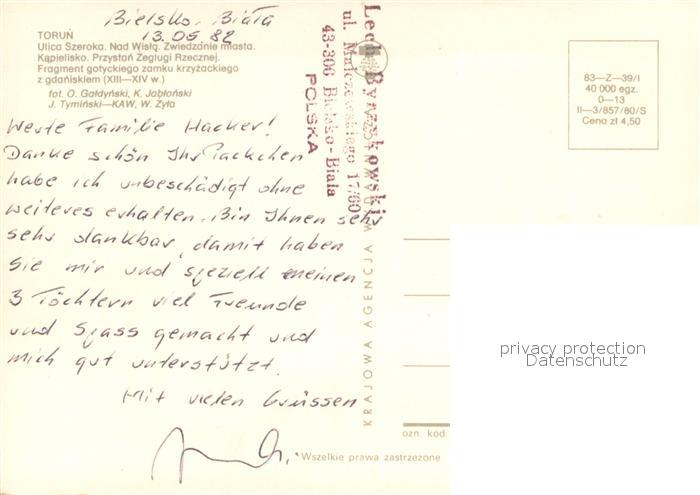 Bielsko-Biała
13.05 82
TORUŃ
Ulica Szeroka. Nad Wisłą. Zwiedzanie miasta.
Kąpielisko. Przystań Żeglugi Rzecznej.
Fragment gotyckiego zamku krzyżackiego
z gdaniskiem (XIII—XIV w.)
fot. O. Gałdyński, K. Jabłoński
J. Tymiński—KAW, W. Żyła
Werte Familie Hacker!
Danke schön Ihr Päckchen
habe ich unbeschädigt ohne
weiteres erhalten. Bin Ihnen sehr
sehr dankbar, damit haben
Sie mir und speziell meinen
3 Töchtern viel Freunde
und Spass gemacht und
mich gut unterstützt.
Mit vielen Grüssen
Lech Byrzskowski
ul. Malczewskiego 17/60
43-306 Bielsko-Biała
POLSKA
KRAJOWA AGENCJA WYDAWNICZA
83—Z—39/I
40 000 egz.
0—13
II—3/857/80/S
Cena zł 4,50
ozn. kod.
Wszelkie prawa zastrzeżone
privacy protection
Datenschutz